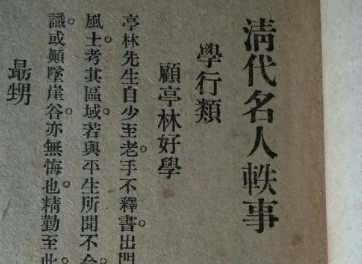 清代名人軼事
學行類
顧亭林好學
亭林先生自少至老。手不釋書。出門
風土。考其區域。若與平生所聞不合
識。或顛墜崖谷。亦無悔也。精勤至此
勗甥